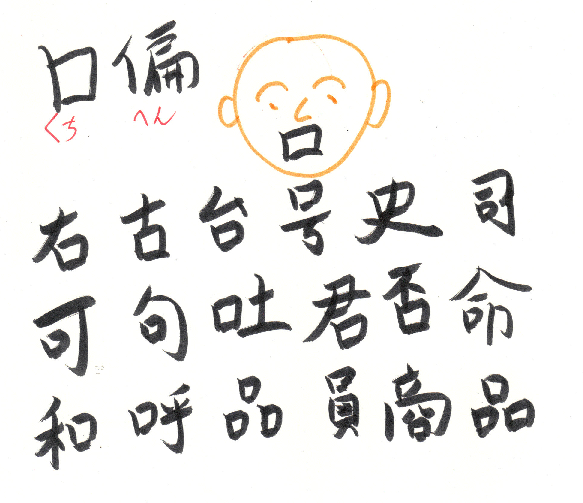 口偏
くち へん
口
右古台号史司
可句吐君否命
和呼品員商品